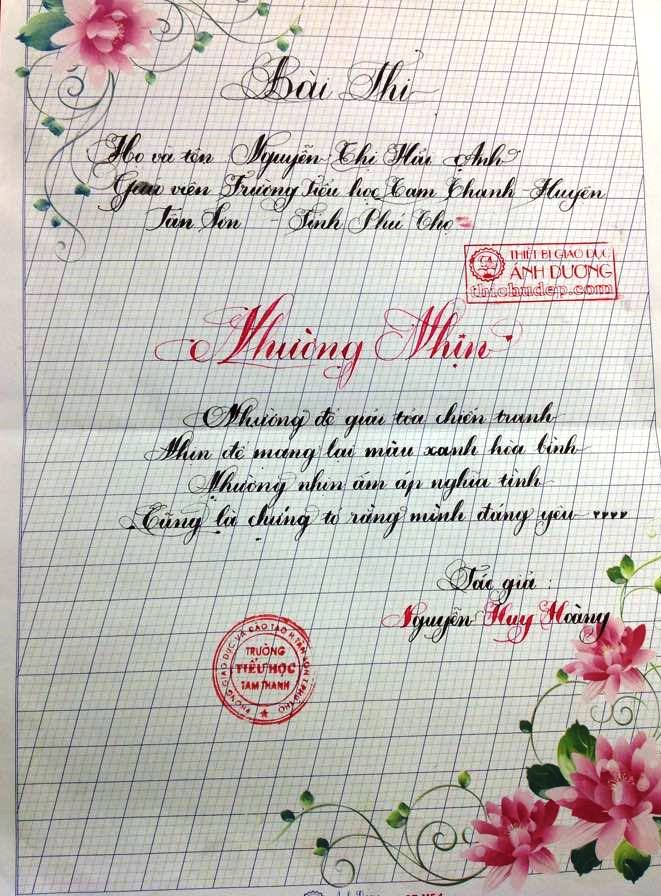 Bài Thi
Họ và tên Nguyễn Thị Hải Anh
Giáo viên Trường Tiểu học Tam Thanh - Huyện
Tân Sơn - Tỉnh Phú Thọ
THIẾT BỊ GIÁO DỤC
ÁNH DƯƠNG
thichudep.com
Nhường Nhịn
Nhường để giải tỏa chiến tranh
Nhịn để mang lại màu xanh hòa bình
Nhường nhịn ấm áp nghĩa tình
Cũng là chứng tỏ rằng mình đáng yêu
Tác giả :
Nguyễn Huy Hoàng
PHÒNG GIÁO DỤC VÀ ĐÀO TẠO H.TÂN SƠN T.PHÚ THỌ
TRƯỜNG
TIỂU HỌC
TAM THANH